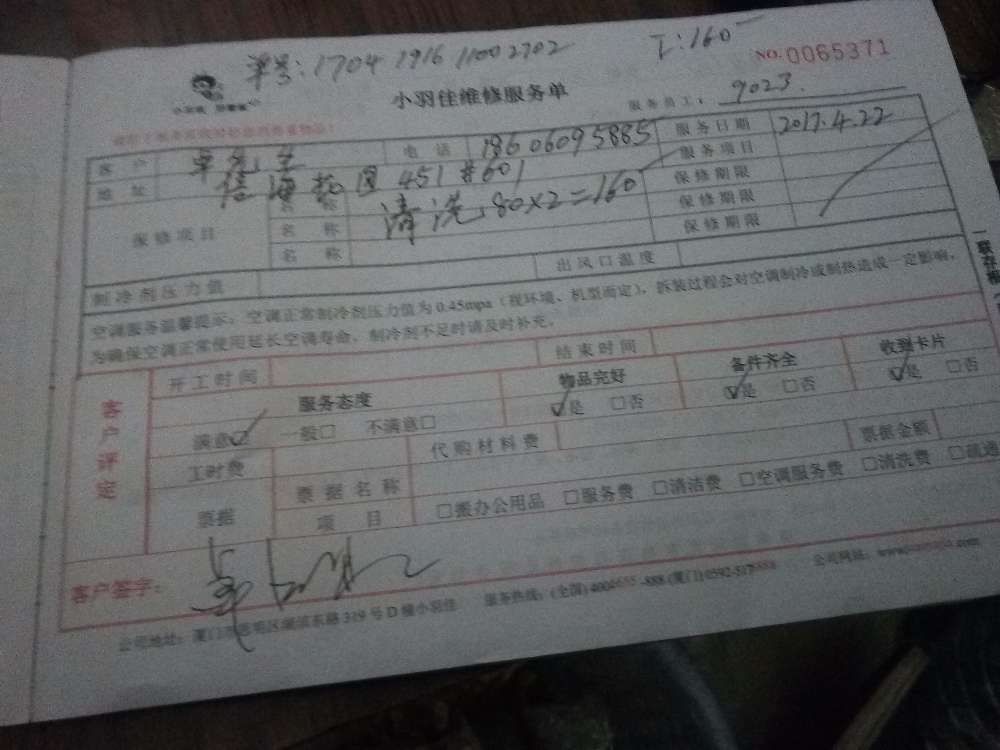 单号:1704 1916 1100 2702
工:160
NO.0065371
小羽佳维修服务单
服务员工: 9023.
客户 卓先生 电话 18606095885 服务日期 2017.4.22
地址 信海苑 451#601 服务项目
保修项目 名称 清洗 80×2=160 保修期限
名称 保修期限
名称 保修期限
制冷剂压力值 出风口温度
空调服务温馨提示:空调正常制冷剂压力值为0.45mpa(视环境、机型而定),拆装过程会对空调制冷或制热造成一定影响,
为确保空调正常使用延长空调寿命,制冷剂不足时请及时补充。
客户评定
开工时间 结束时间
服务态度 物品完好 备件齐全 收到卡片
满意☑ 一般□ 不满意□ ☑是 □否 ☑是 □否 ☑是 □否
工时费 代购材料费 票据金额
票据 票据名称
项目 □搬办公用品 □服务费 □清洁费 □空调服务费 □清洗费 □疏通
客户签字:
公司地址:厦门市思明区湖滨东路319号D幢小羽佳 服务热线:(全国) (厦门)0592-517 公司网站:www. .com